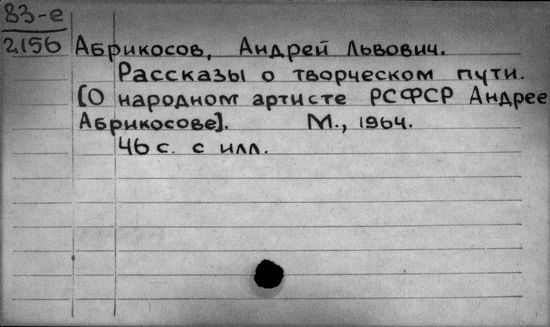 83-е
2156
Абрикосов, Андрей Львович.
Рассказы о творческом пути.
[О народном артисте РСФСР Андрее
Абрикосове]. М., 1964.
46 с. с илл.